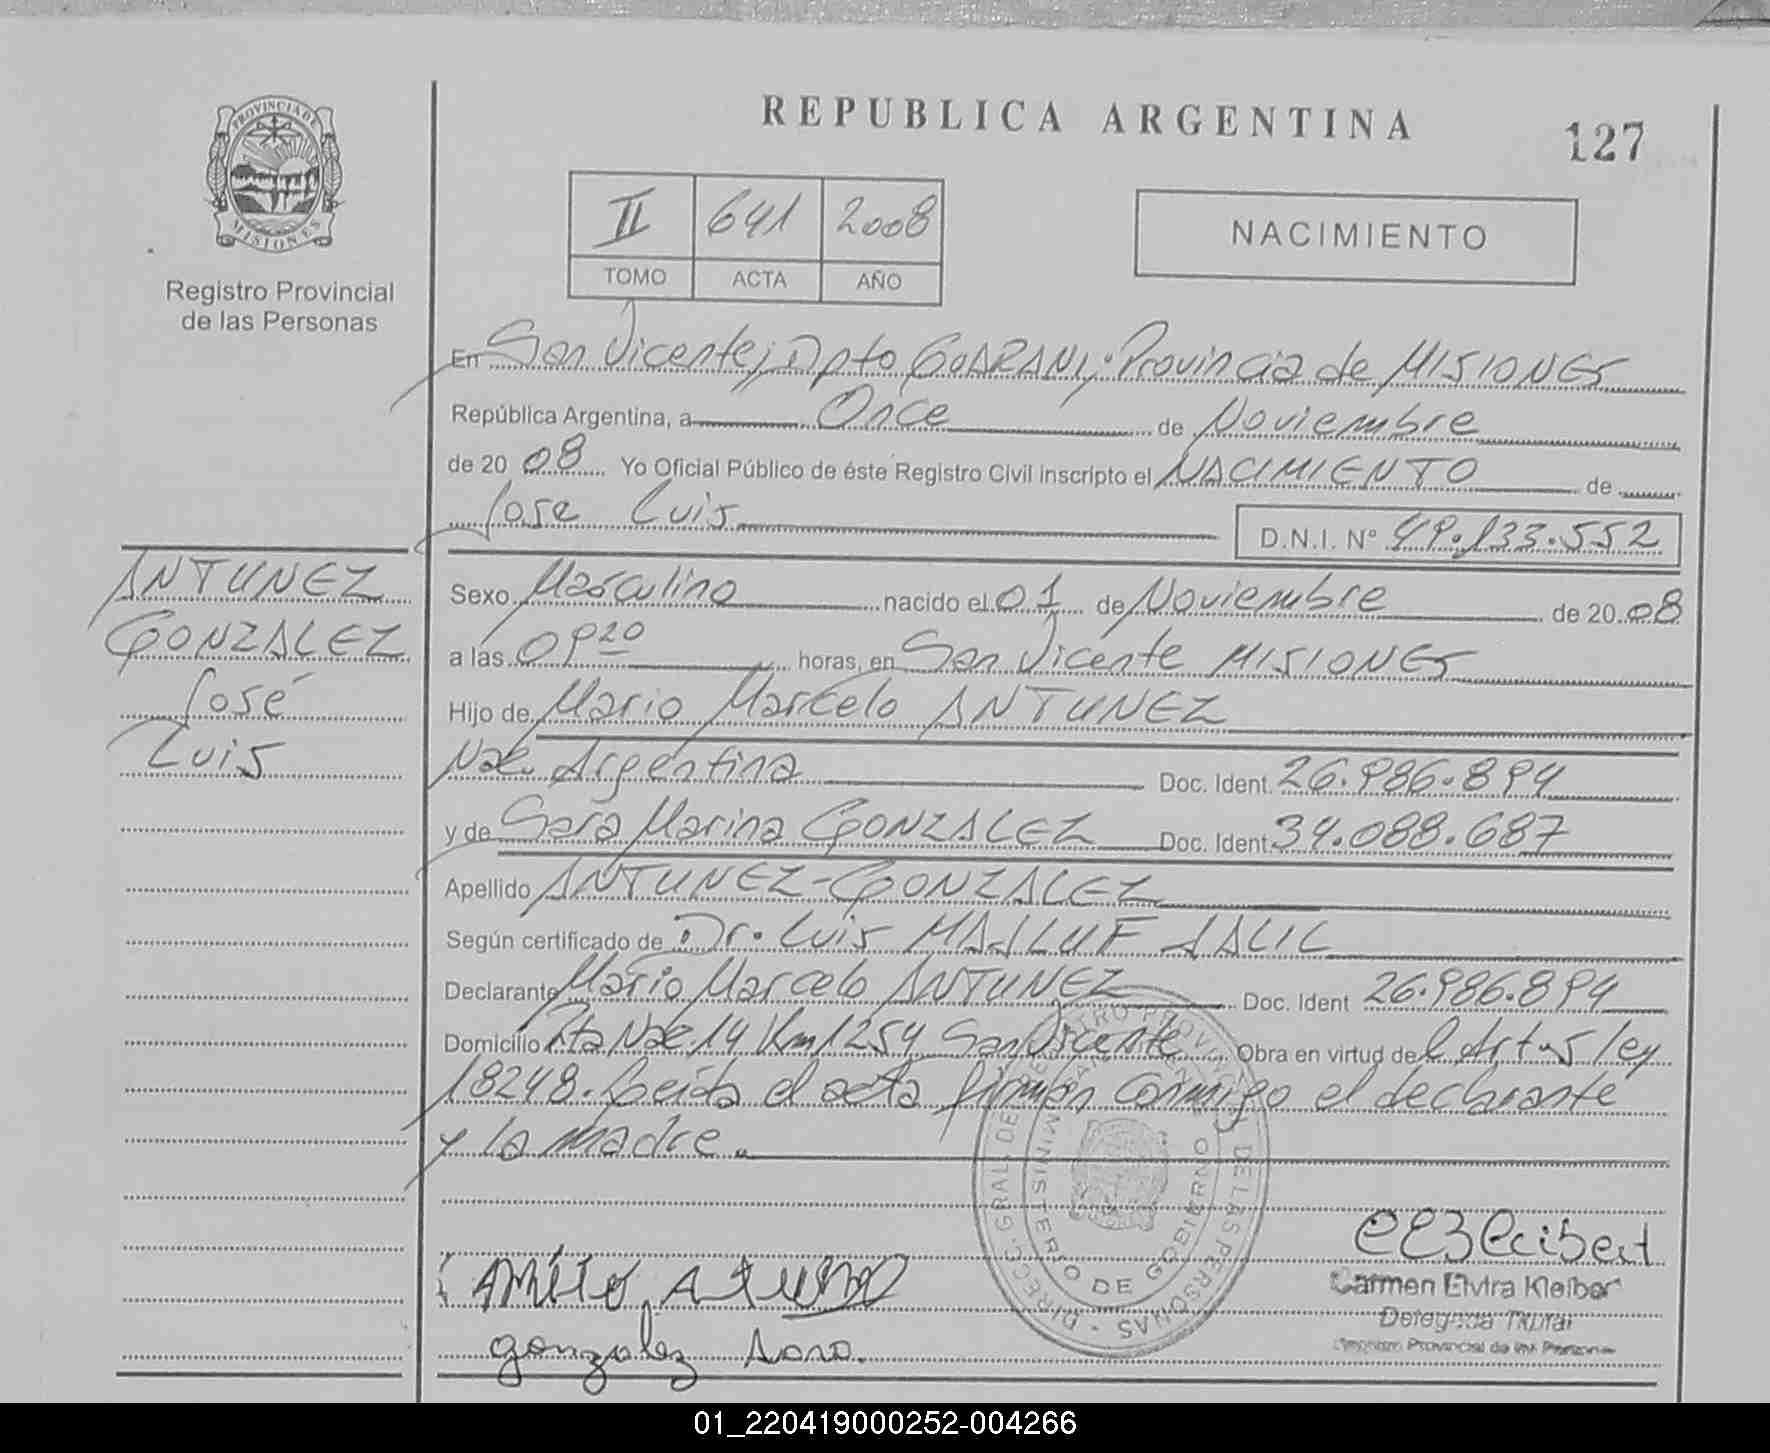 REPUBLICA ARGENTINA
127
PROVINCIA DE
MISIONES
Registro Provincial
de las Personas
II 641 2008
TOMO ACTA AÑO
NACIMIENTO
En San Vicente, Dpto GUARANI, Provincia de MISIONES
República Argentina, a Once de Noviembre
de 2008 Yo Oficial Público de éste Registro Civil inscripto el NACIMIENTO de
Jose Luis D.N.I. Nº 49.133.552
ANTUNEZ
GONZALEZ
José
Luis
Sexo Masculino nacido el 01 de Noviembre de 2008
a las 09 20 horas, en San Vicente MISIONES
Hijo de Mario Marcelo ANTUNEZ
Nac. Argentina Doc. Ident. 26.986.894
y de Sara Marina GONZALEZ Doc. Ident 34.088.687
Apellido ANTUNEZ-GONZALEZ
Según certificado de Dr. Luis MAJLUF JALIL
Declarante Mario Marcelo ANTUNEZ Doc. Ident 26.986.894
Domicilio Rta Nac. 14 Km 1254 San Vicente Obra en virtud del Art. 5 ley
18248. Leída el acta firman conmigo el declarante
y la madre.
DIRECC. GRAL. DEL REGISTRO PROVINCIAL DE LAS PERSONAS
MINISTERIO DE GOBIERNO
gonzalez Sara.
Carmen Elvira Kleiber
Delegada Titular
Registro Provincial de las Personas
01_220419000252-004266